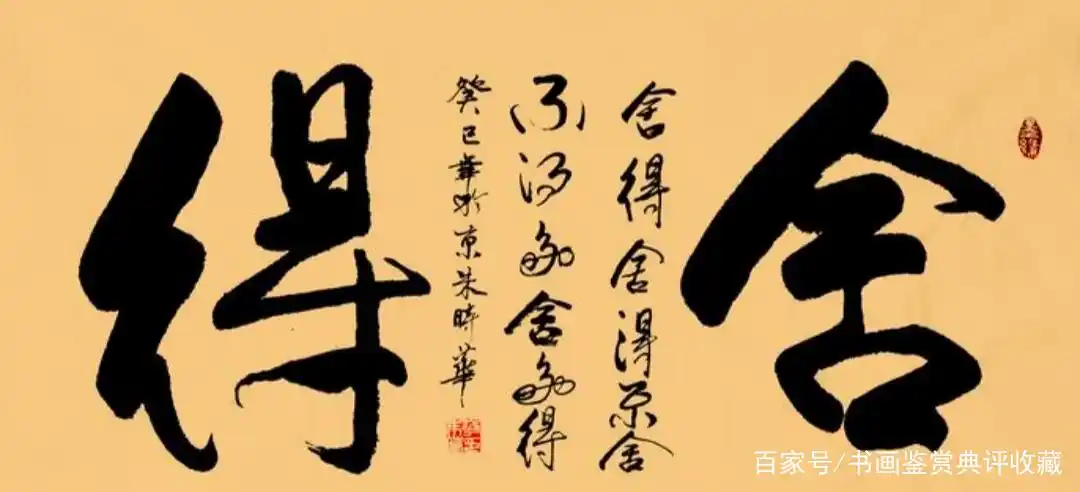 舍得
舍得舍得不舍
不得多舍多得
癸巳年於京朱時華
百家号/书画鉴赏典评收藏